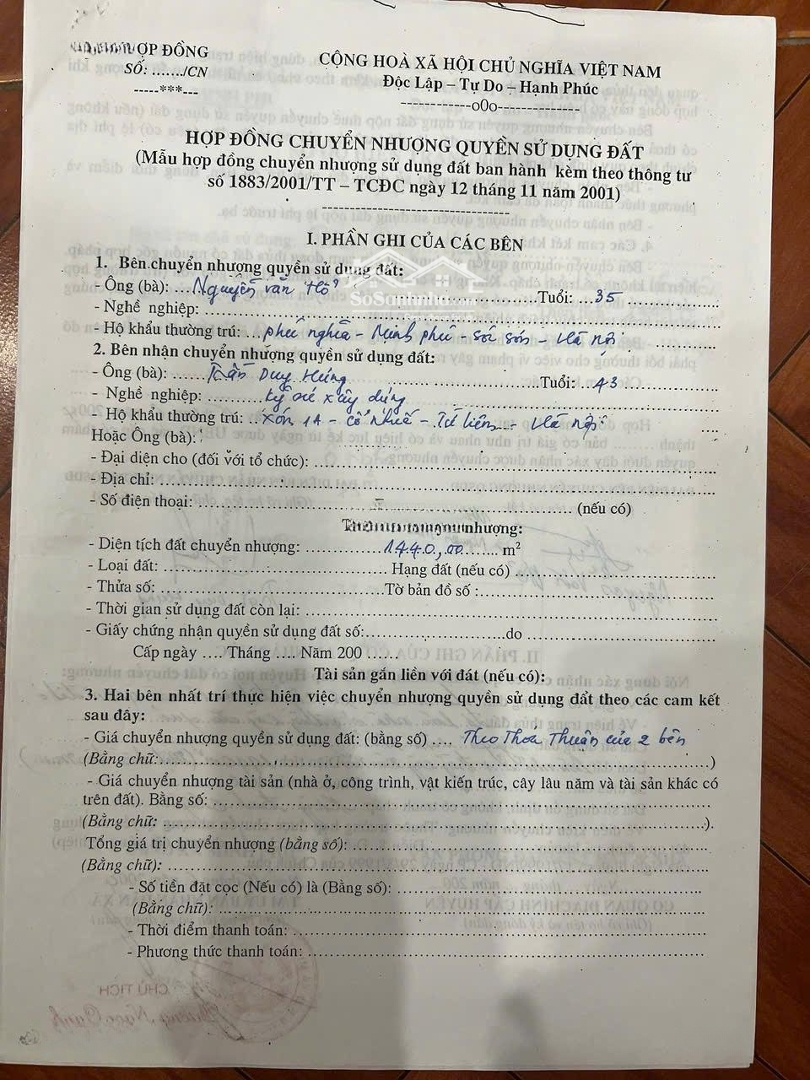 HỢP ĐỒNG
SỐ: ......./CN
-----***---
CỘNG HOÀ XÃ HỘI CHỦ NGHĨA VIỆT NAM
Độc Lập – Tự Do – Hạnh Phúc
------------o0o--------------
HỢP ĐỒNG CHUYỂN NHƯỢNG QUYỀN SỬ DỤNG ĐẤT
(Mẫu hợp đồng chuyển nhượng sử dụng đất ban hành kèm theo thông tư
số 1883/2001/TT – TCĐC ngày 12 tháng 11 năm 2001)
I. PHẦN GHI CỦA CÁC BÊN
1. Bên chuyển nhượng quyền sử dụng đất:
- Ông (bà): ...Nguyễn văn Hổ...Tuổi: ...35...
- Nghề nghiệp:...
- Hộ khẩu thường trú: ...phú nghĩa - Minh phú - Sóc Sơn - Hà Nội
2. Bên nhận chuyển nhượng quyền sử dụng đất:
- Ông (bà): ...Trần Duy Hưng...Tuổi: ...43...
- Nghề nghiệp: ...Kỹ sư xây dựng
- Hộ khẩu thường trú: ...xóm 1A - Cổ Nhuế - Từ liêm - Hà Nội
Hoặc Ông (bà):
- Đại diện cho (đối với tổ chức): ...
- Địa chỉ: ...
- Số điện thoại: ... (nếu có)
nhượng:
- Diện tích đất chuyển nhượng: ...1440,00... m²
- Loại đất: ... Hạng đất (nếu có) ...
- Thửa số: ...Tờ bản đồ số :...
- Thời gian sử dụng đất còn lại: ...
- Giấy chứng nhận quyền sử dụng đất số:...do ...
Cấp ngày .... Tháng .... Năm 200 ......
Tài sản gắn liền với đát (nếu có):
3. Hai bên nhất trí thực hiện việc chuyển nhượng quyền sử dụng đất theo các cam kết
sau đây:
- Giá chuyển nhượng quyền sử dụng đất: (bằng số) .... Theo Thoả Thuận của 2 bên
(Bằng chữ:...)
- Giá chuyển nhượng tài sản (nhà ở, công trình, vật kiến trúc, cây lâu năm và tài sản khác có
trên đất). Bằng số: ...
(Bằng chữ: ...).
Tổng giá trị chuyển nhượng (bằng số): ...
(Bằng chữ): ...
- Số tiền đặt cọc (Nếu có) là (Bằng số): ...
(Bằng chữ): ...
- Thời điểm thanh toán: ...
- Phương thức thanh toán: ...